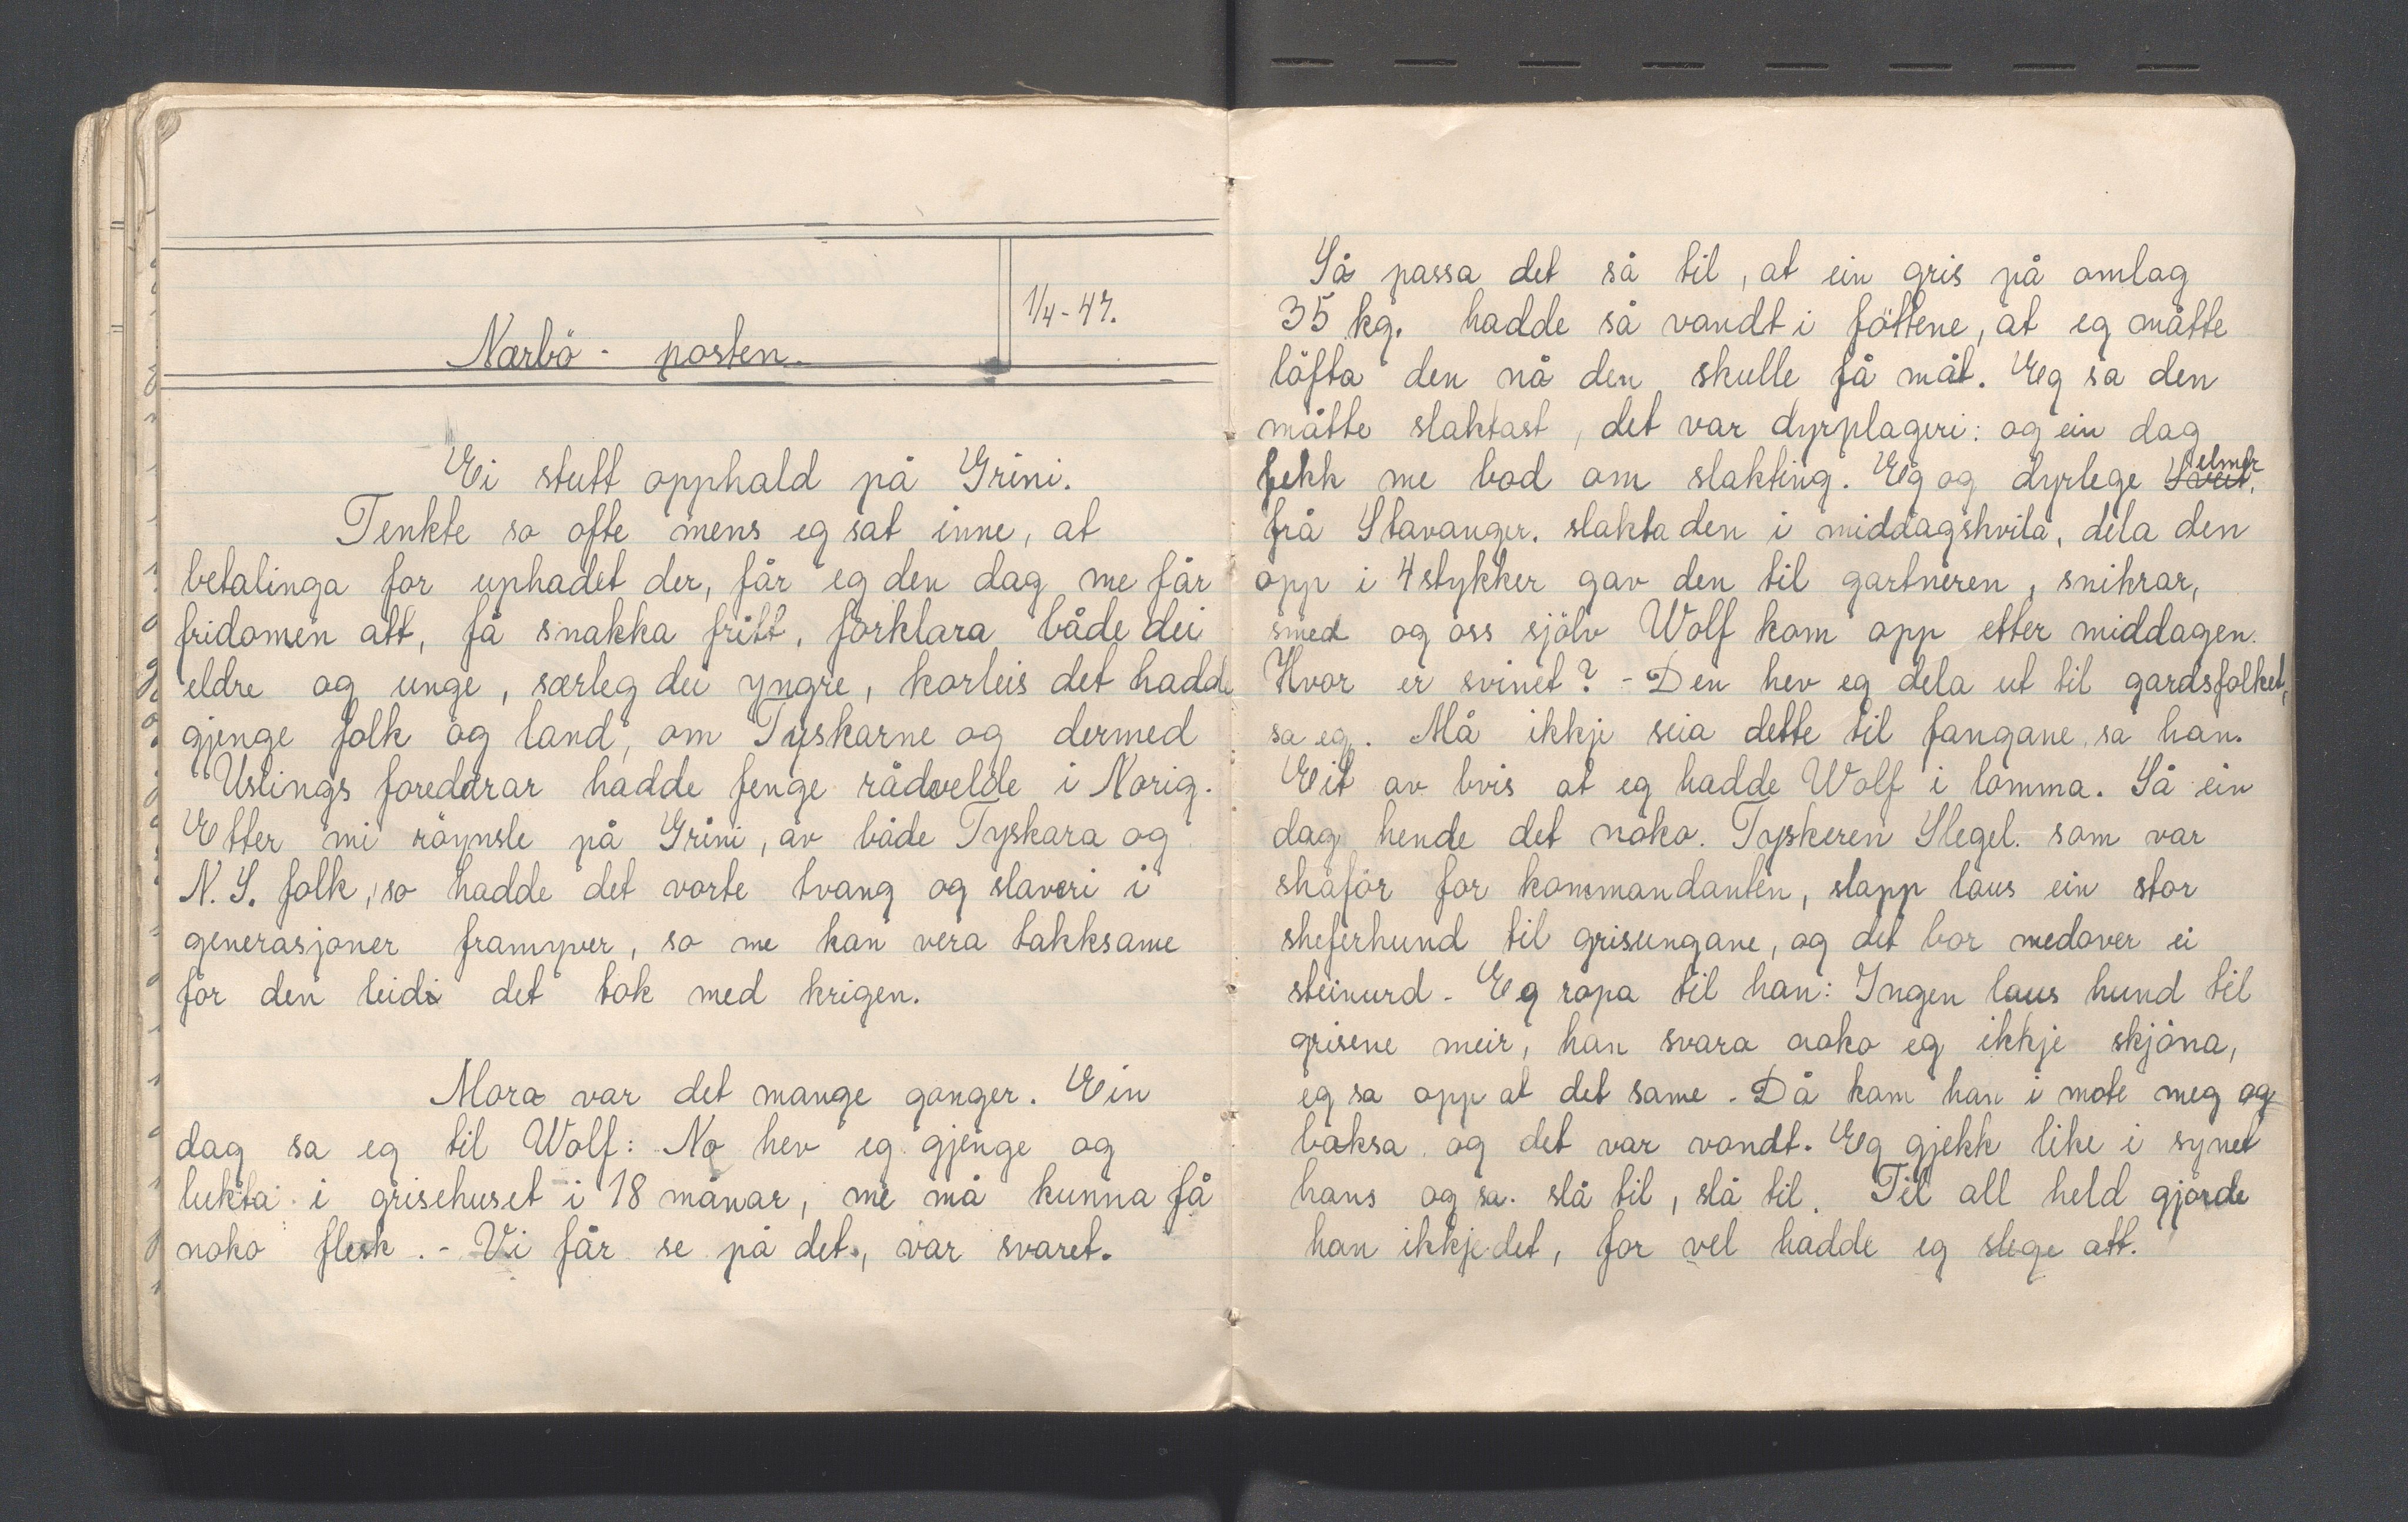 1/4-47.
Nærbö - posten.
Ei stutt opphald på Grini.
Tenkte so ofte mens eg sat inne, at
betalinga for uphadet der, får eg den dag me får
fridomen att, få snakka fritt, forklara både dei
eldre og unge, særleg dei yngre, korleis det hadde
gjenge folk og land, om Tyskarne og dermed
Uslings foredarar hadde fenge rådvelde i Norig.
Etter mi röynsle på Grini, av både Tyskara og
N.S. folk, so hadde det vorte tvang og slaveri i
generasjoner framyver, so me kan vera takksame
for den leidi det tok med krigen.
Mora var det mange ganger. Ein
dag sa eg til Wolf: No hev eg gjenge og
lukta i grisehuset i 18 månar, me må kunna få
noko flesk. - Vi får se på det, var svaret.
Så passa det så til, at ein gris på omlag
35 kg. hadde så vandt i föttene, at eg måtte
löfta den nå den skulle få måt. Eg sa den
måtte slaktast, det var dyrplageri: og ein dag
fekk me bod om slakting. Eg og dyrlege Selmer
frå Stavanger. slakta den i middagskvila, dela den
opp i 4 stykker gav den til gartneren, snikrar,
smed og oss sjölv Wolf kom opp etter middagen.
Hvor er svinet? - Den hev eg dela ut til gardsfolket,
sa eg. Må ikkje seia dette til fangane, sa han.
Eit av bvis at eg hadde Wolf i lomma. Så ein
dag hende det noko. Tyskeren Slegel. som var
skåför for kommandanten, slapp laus ein stor
sheferhund til grisungane, og det bor medover ei
steinurd - Eg ropa til han: Ingen laus hund til
grisene meir, han svara noko eg ikkje skjöna,
eg sa opp at det same - Då kom han i mote meg og
boksa og det var vondt. Eg gjekk like i synet
hans og sa. slå til, slå til. Til all held gjorde
han ikkje det, for vel hadde eg slege att.